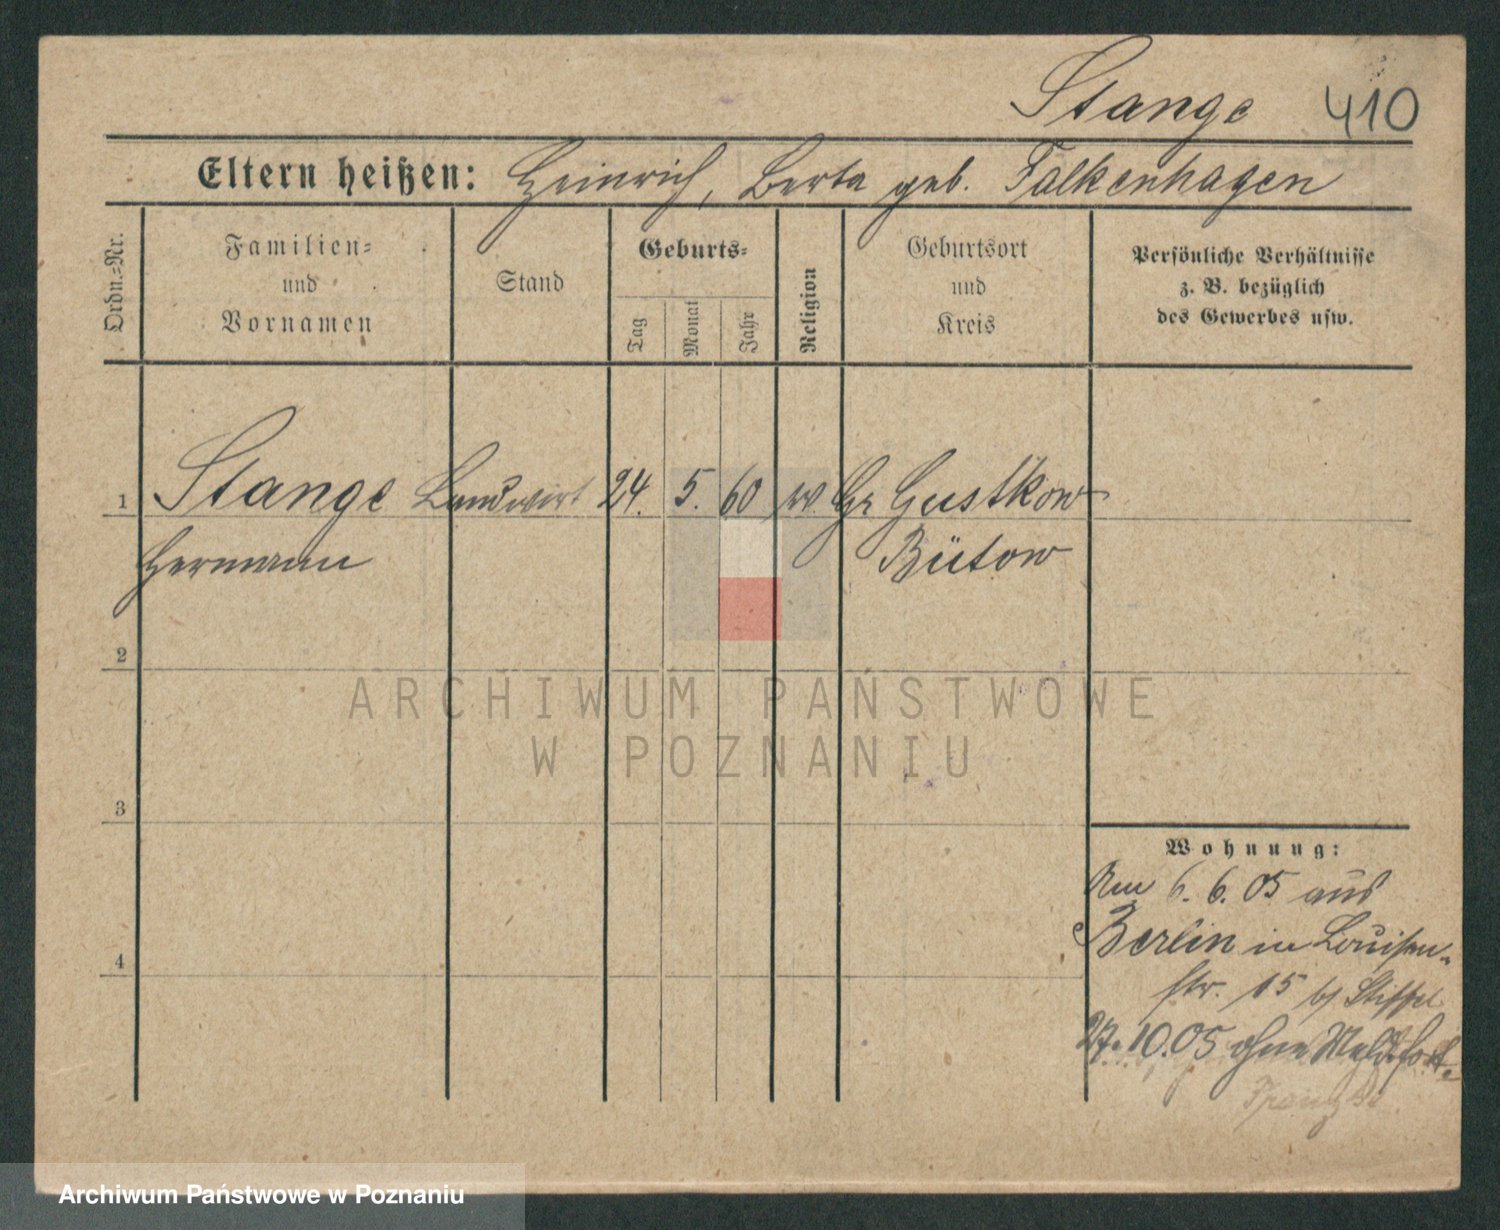 Stange 410
Eltern heißen: Heinrich, Berta geb. Falkenhagen
Ordn.-Nr.
Familien-
und
Vornamen
Stand
Geburts-
Tag
Monat
Jahr
Religion
Geburtsort
und
Kreis
Persönliche Verhältnisse
z. B. bezüglich
des Gewerbes usw.
1 Stange Landwirt 24. 5. 60 Gr Gustkow
Hermann Bütow
2
ARCHIWUM PAŃSTWOWE
W POZNANIU
3
Wohnung:
Am 6. 6. 05 aus
Berlin in Louisen-
4
str. 15 b/ Stiffel
27.10.05 ohne Meld. fort.
Archiwum Państwowe w Poznaniu